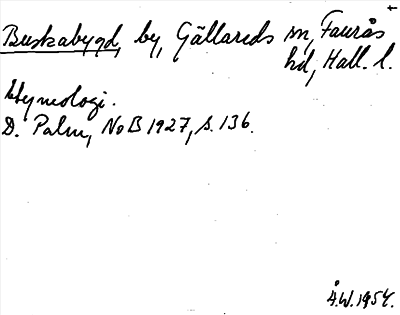 Buskabygd, by, Gällareds sn, Faurås
hd, Hall. l.
Etymologi.
D. Palm, NoB 1927, s. 136.
Å.W. 1954.